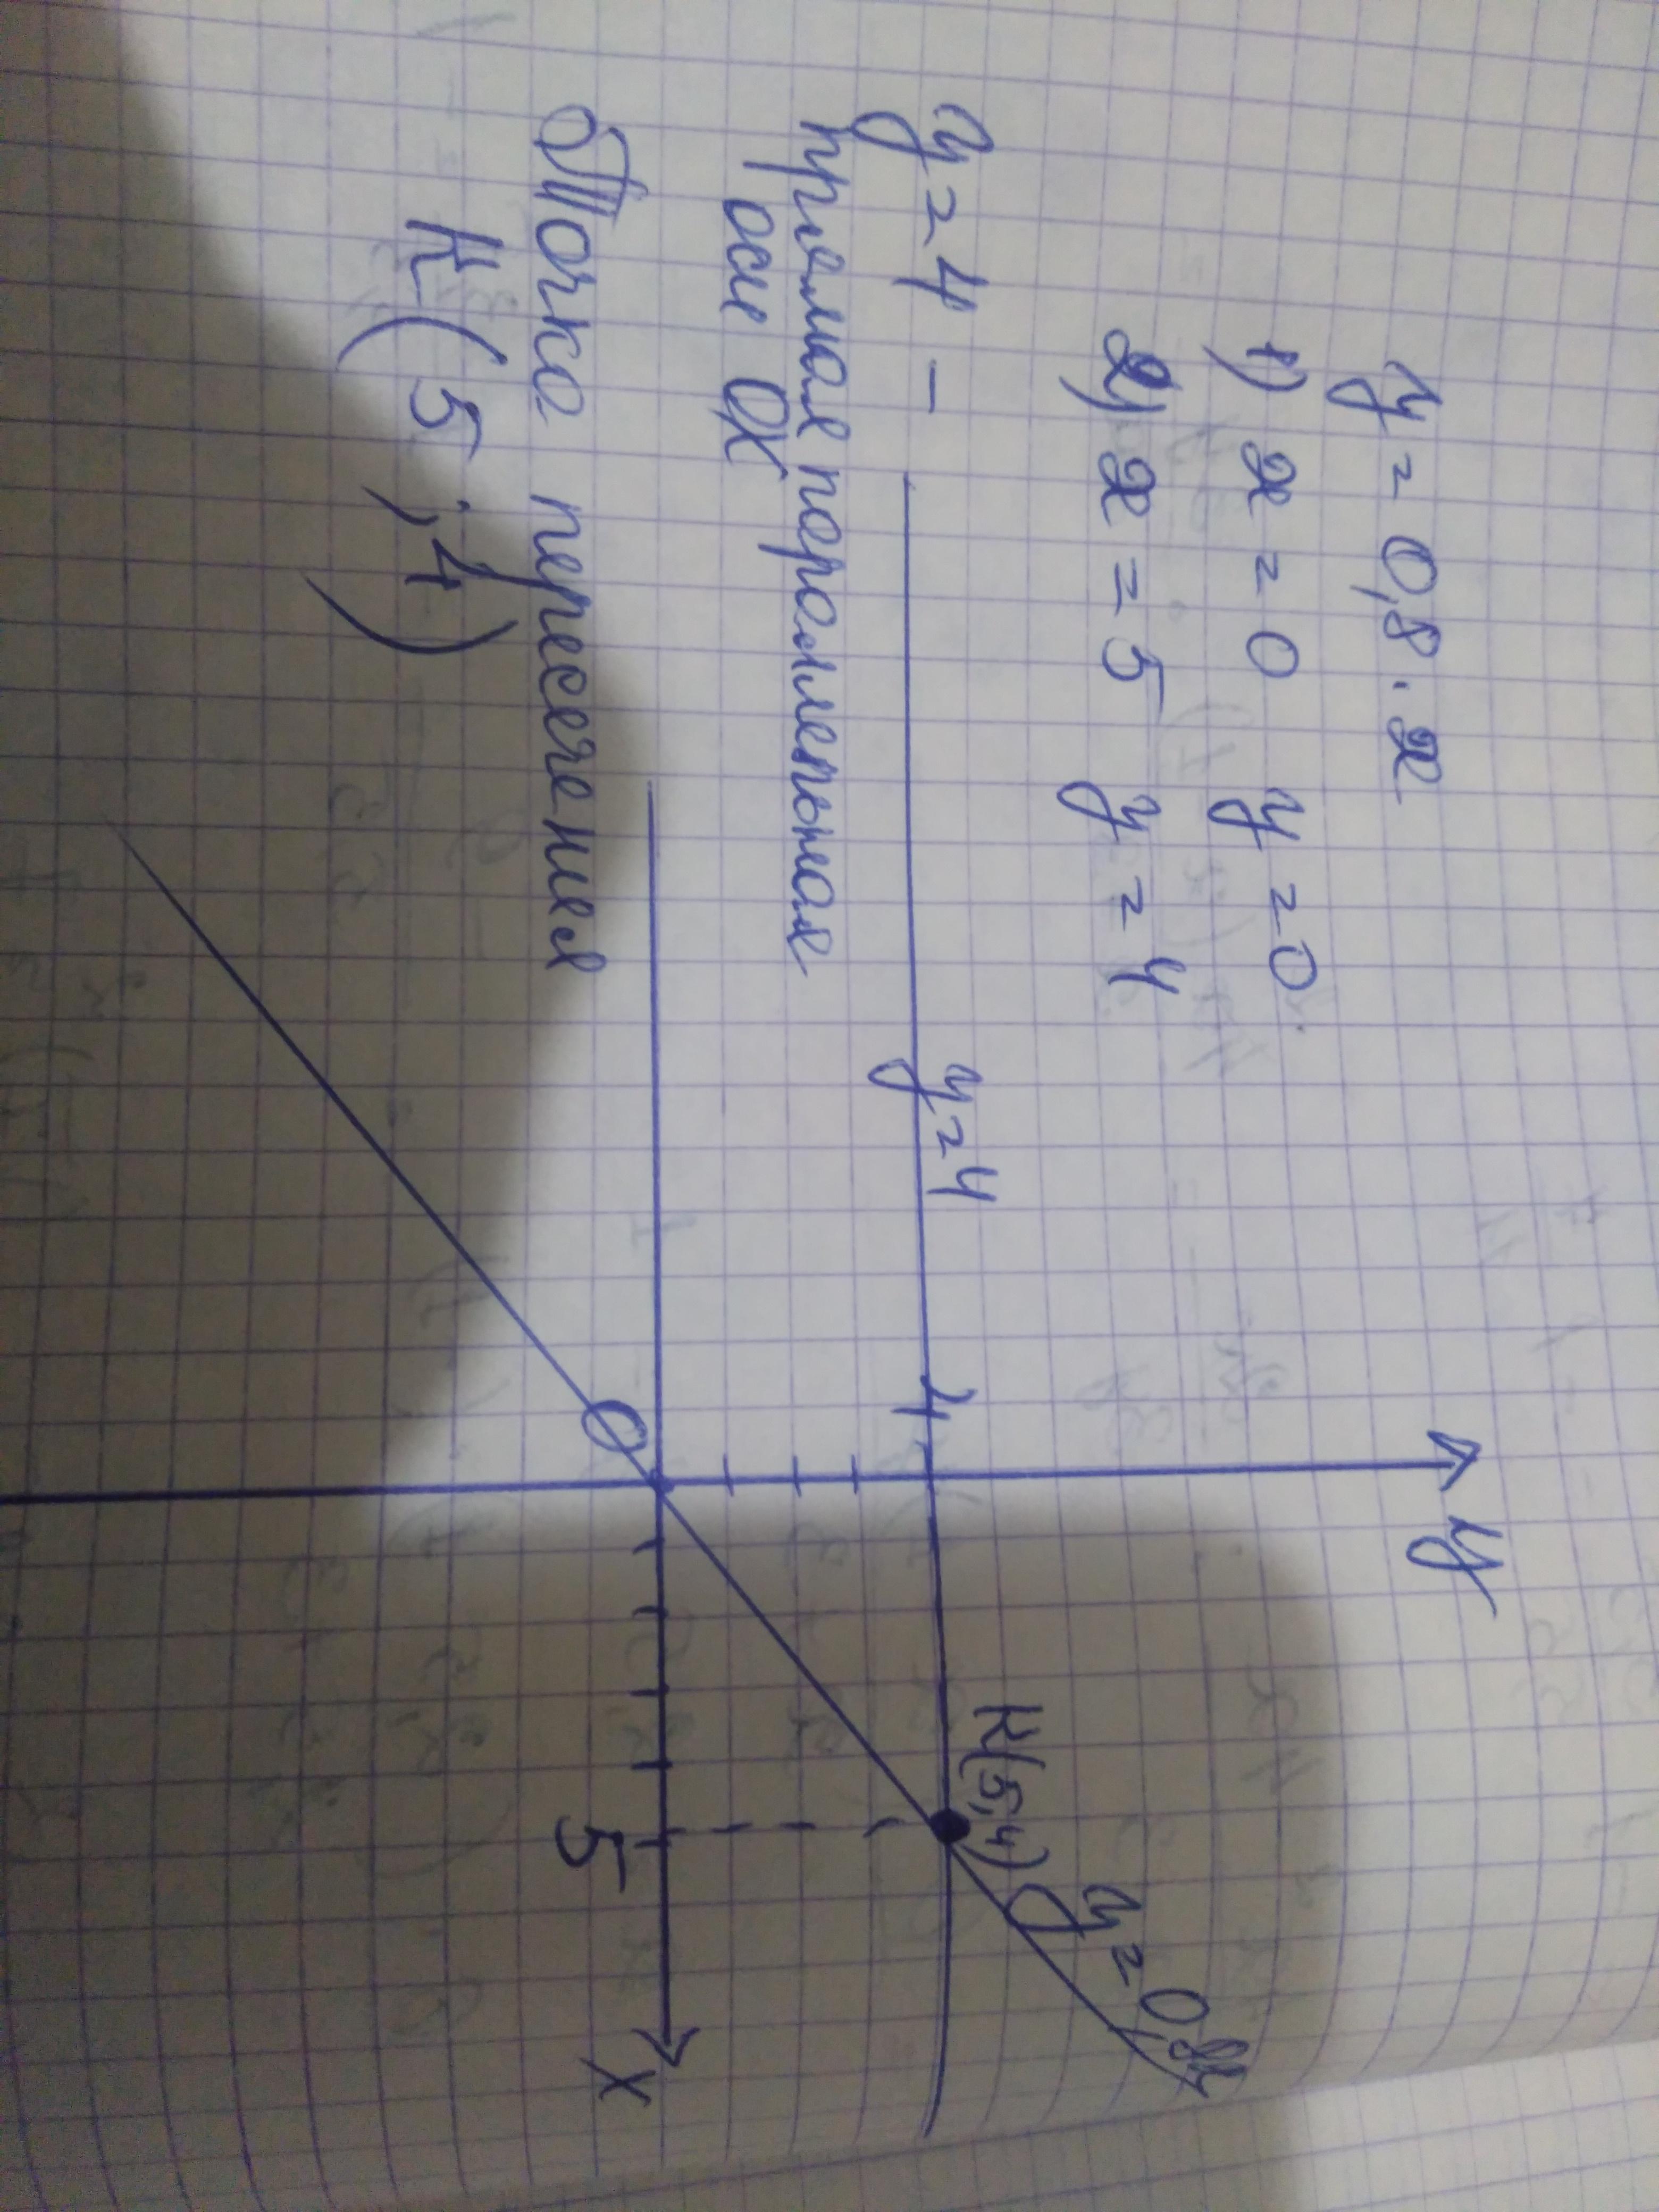 y = 0,8 · x
1) x = 0 y = 0
2) x = 5 y = 4
y = 4 –
прямая параллельная
оси OX
Точка пересечения
K (5 ; 4)
y
y = 4
4
K(5,4)
y = 0,8x
O
5
x